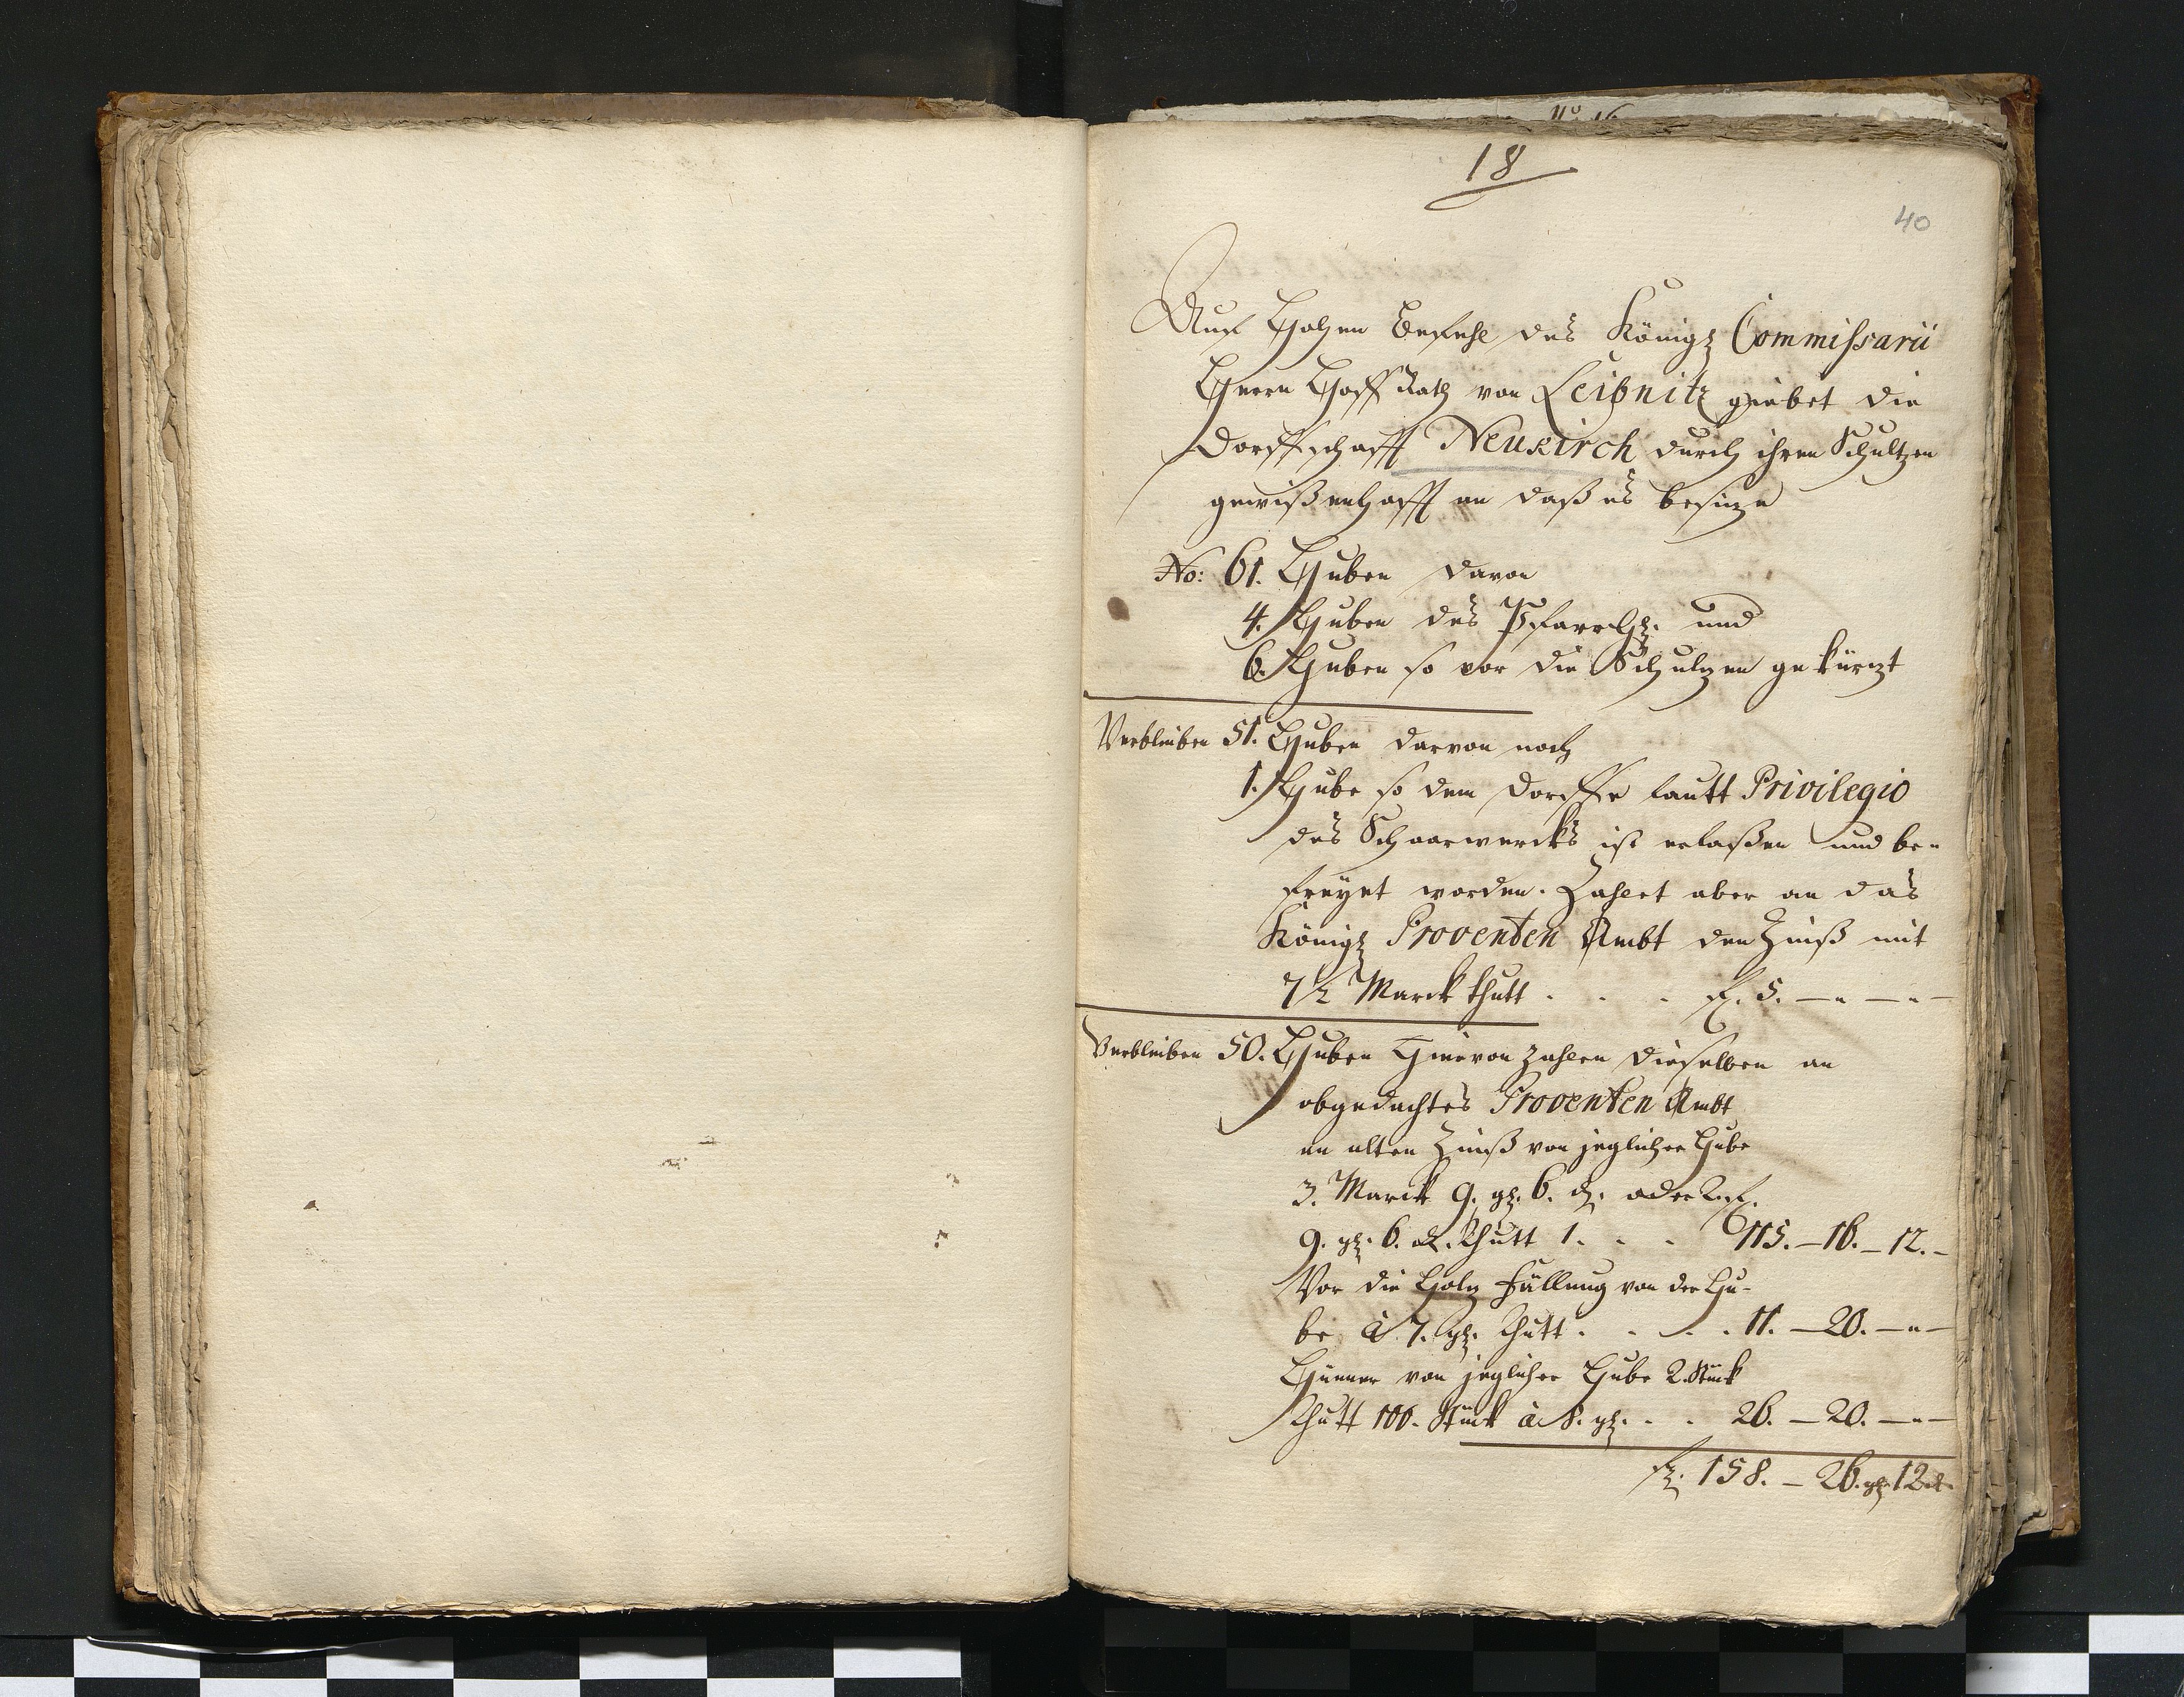 18
40
Auf Hohen Befehl des Königl Commissarii
Herrn Hoff Rath von Leibnitz giebet die
Dorffschafft Neukirch durch ihren Schultzen
gewißenhafft an daß es besitze
No: 61. Huben davon
4. Huben des Pfarrh. und
6. Huben so vor die Schultzen gekürtzt
Verbleiben 51. Huben darvon noch
1. Hube so dem Dorffe lautt Privilegio
des Schaarwercks ist erlaßen und be-
freyet worden. Zahlet aber an das
Königl Proventen Ambt den Zinß mit
7½ Marck thutt . . . fl. 5. — " — " —
Verbleiben 50. Huben Hiervon zahlen dieselben an
obgedachtes Proventen Ambt
an alten Zinß von jeglicher Hube
3. Marck 9. gl. 6. d. oder 2. fl.
9. gl. 6. d. thutt 1. . . 115. — 16. — 12. —
Vor die Holtz Fällung von der Hu-
be à 7. gl. thutt . . . . 11. — 20. — " —
Hüner von jeglicher Hube 2. Stück
thutt 100. Stück à 8. gl. . . 26. — 20. — " —
fl. 158. — 26. gl. 12 d.